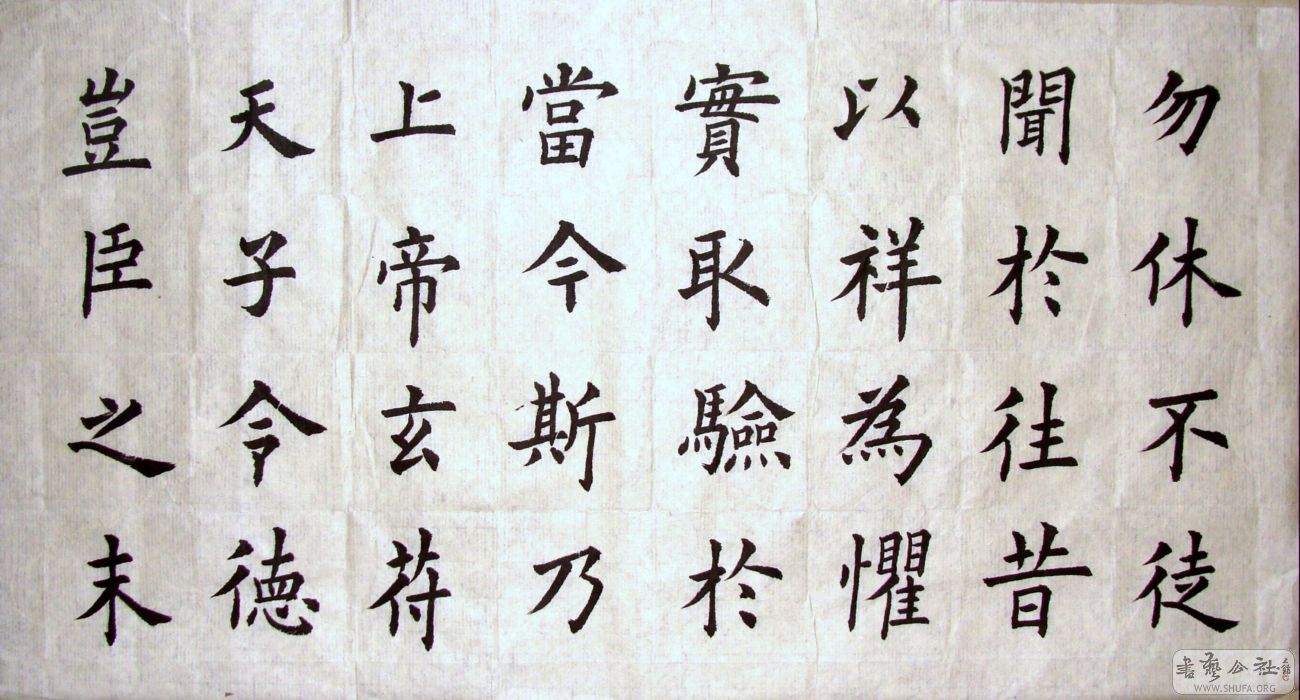 勿休不徒
聞於往昔
以祥為懼
實取驗於
當今斯乃
上帝玄符
天子令德
豈臣之末
書藝公社
WWW.SHUFA.ORG